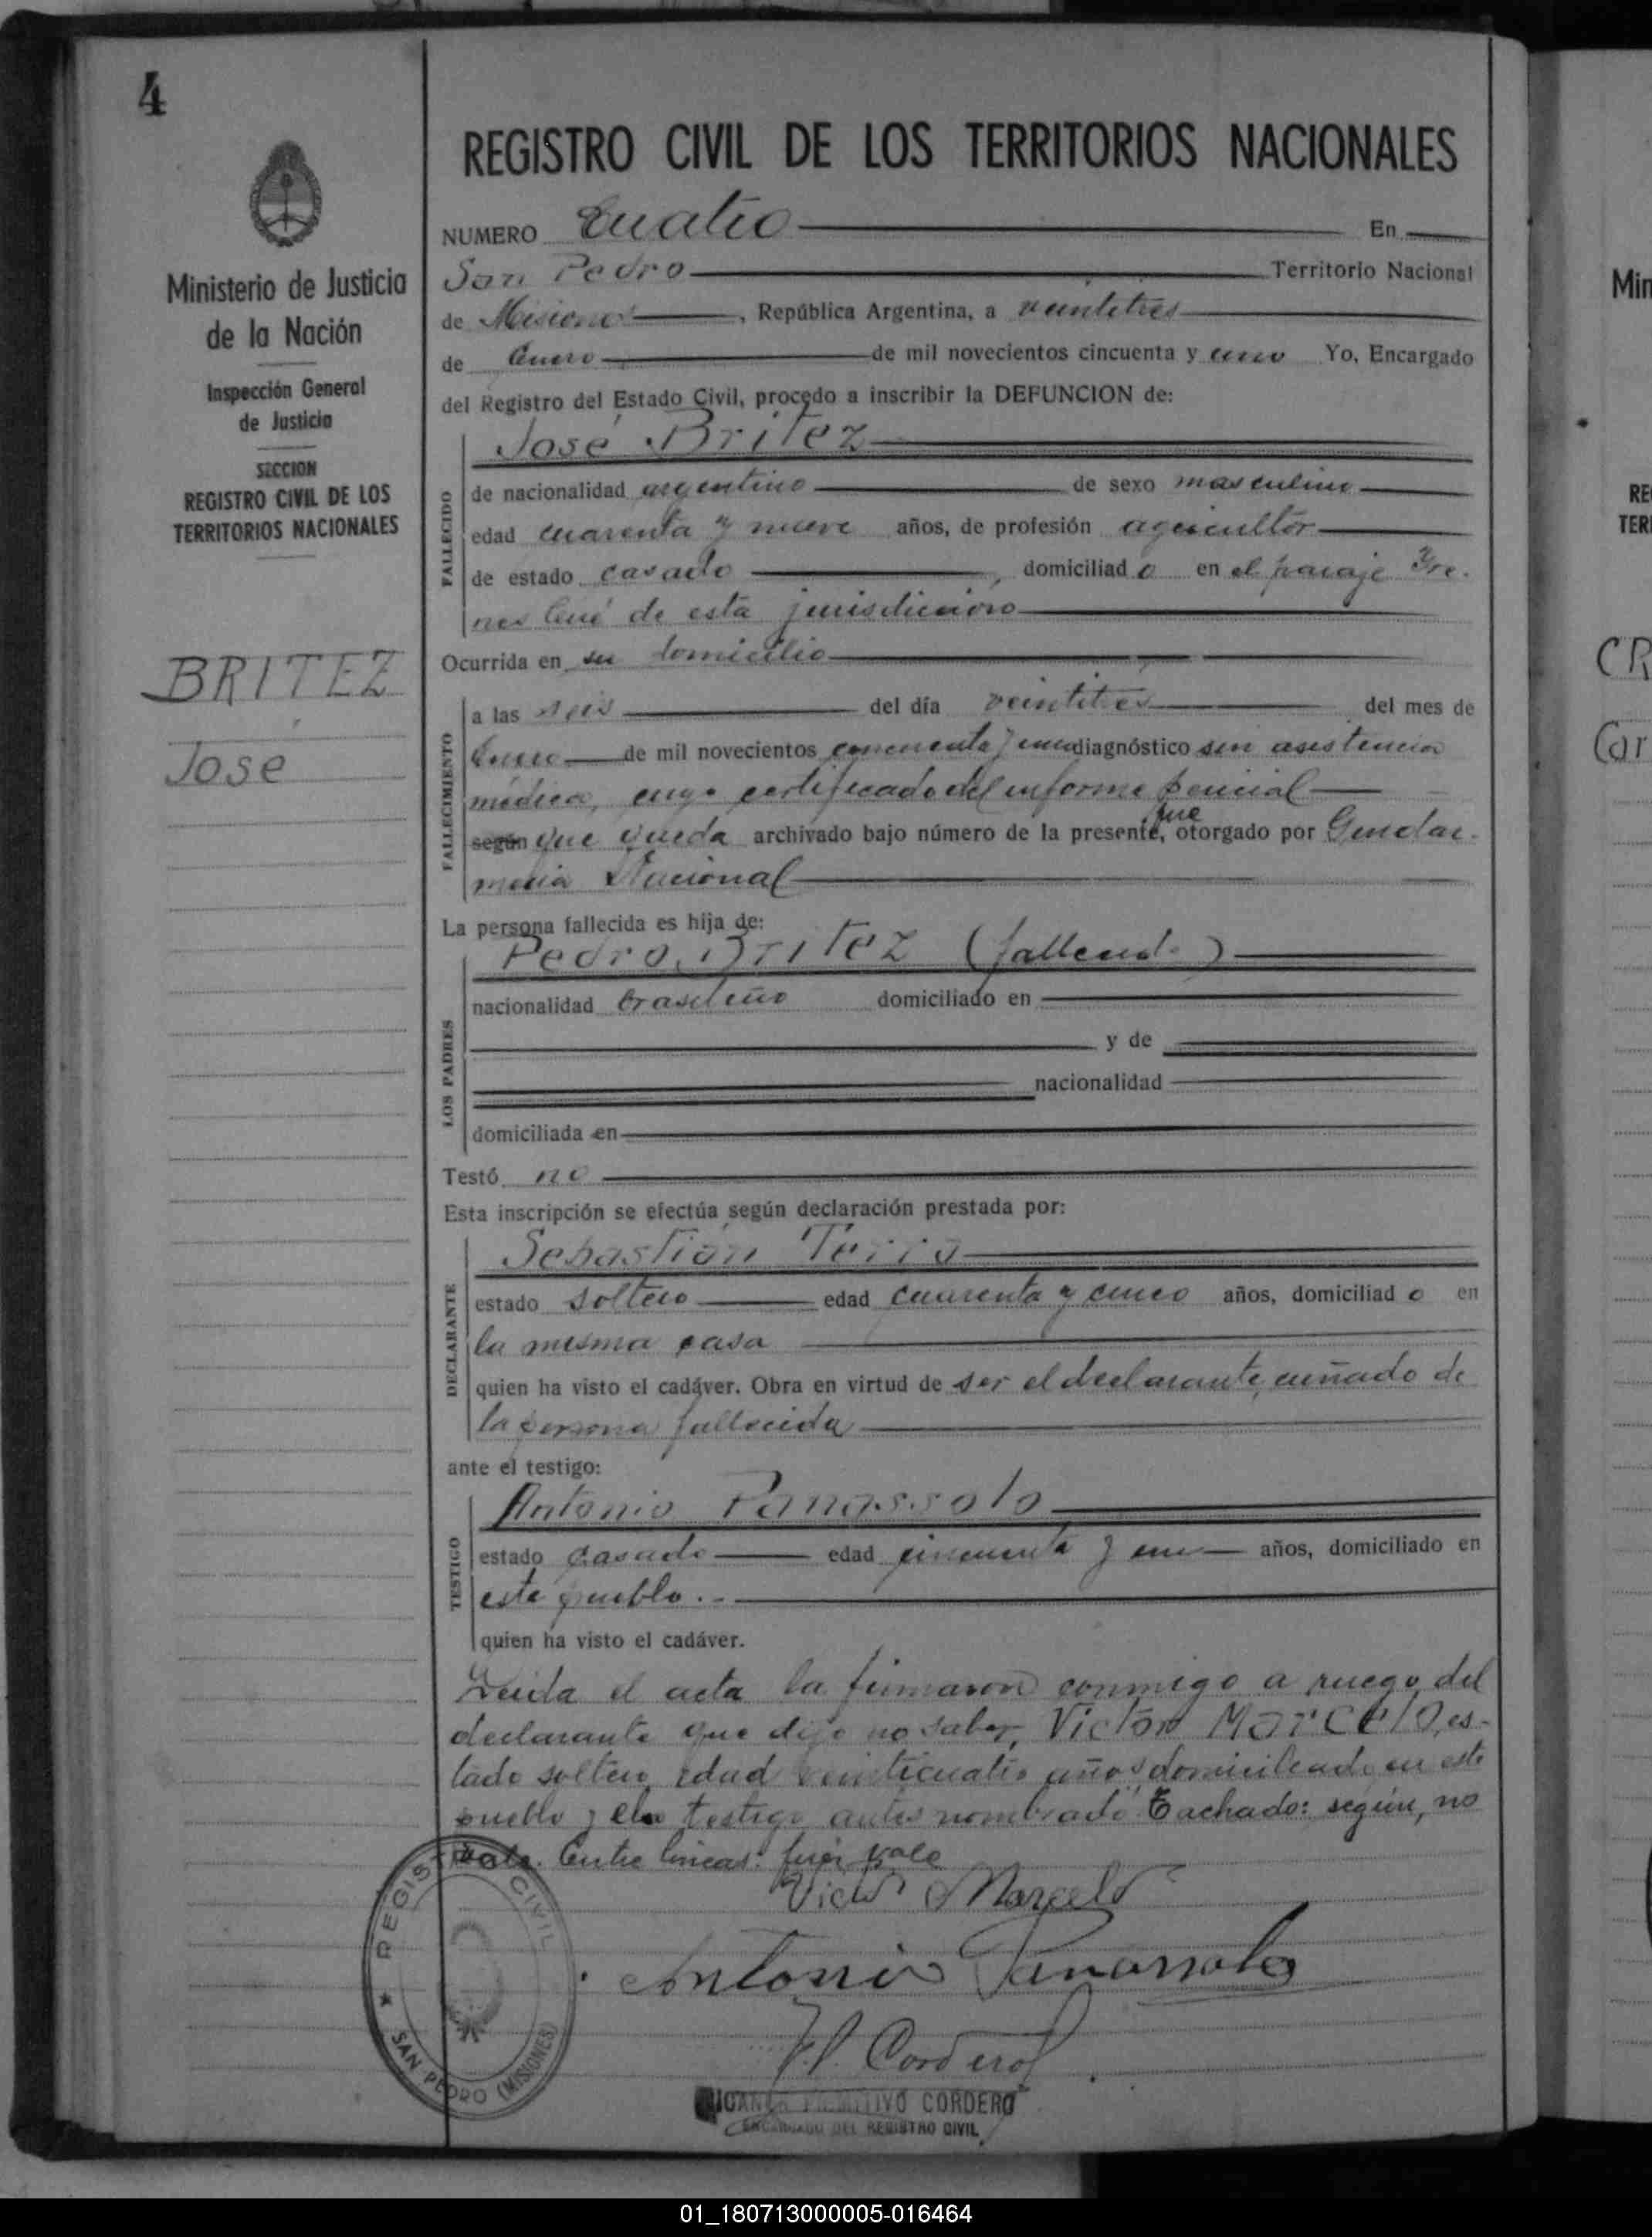 4
REGISTRO CIVIL DE LOS TERRITORIOS NACIONALES
Ministerio de Justicia
de la Nación
Inspección General
de Justicia
SECCION
REGISTRO CIVIL DE LOS
TERRITORIOS NACIONALES
BRITEZ
José
NUMERO Cuatro En
San Pedro Territorio Nacional
de Misiones, República Argentina, a veintitres
de Enero de mil novecientos cincuenta y uno Yo, Encargado
del Registro del Estado Civil, procedo a inscribir la DEFUNCION de:
José Britez
FALLECIDO
de nacionalidad argentino de sexo masculino
edad cuarenta y nueve años, de profesión agricultor
de estado casado, domiciliado en el paraje
de esta jurisdicción
Ocurrida en su domicilio
FALLECIMIENTO
a las seis del día veintitres del mes de
Enero de mil novecientos cincuenta y uno diagnóstico sin asistencia
médica, cuyo certificado del informe pericial
fue
según que queda archivado bajo número de la presente, otorgado por Gendar-
meria Nacional
La persona fallecida es hija de:
LOS PADRES
Pedro Britez (fallecido)
nacionalidad brasileño domiciliado en
y de
nacionalidad
domiciliada en
Testó no
Esta inscripción se efectúa según declaración prestada por:
DECLARANTE
Sebastián
estado soltero edad cuarenta y cinco años, domiciliado en
la misma casa
quien ha visto el cadáver. Obra en virtud de ser el declarante, cuñado de
la persona fallecida
ante el testigo:
TESTIGO
Antonio Panassolo
estado casado edad cincuenta y uno años, domiciliado en
este pueblo.-
quien ha visto el cadáver.
Leida el acta la firmaron conmigo a ruego del
declarante que dijo no saber, Victor Marcelo, es-
tado soltero, edad veinticuatro años domiciliado en este
pueblo y el testigo antes nombrado. Tachado: según, no
vale. Entre lineas: fue: vale
Victor Marcelo
Antonio Panassolo
Cordero
REGISTRO CIVIL
★ SAN PEDRO (MISIONES)
PRIMITIVO CORDERO
ENCARGADO DEL REGISTRO CIVIL
Min
RE
TER
CR
Car
01_180713000005-016464